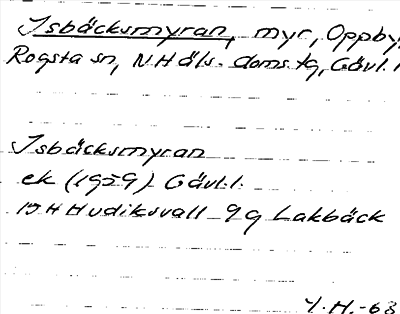 Isbäcksmyran, myr, Oppby,
Rogsta sn, N Häls. doms.tg, Gävl. l
Isbäcksmyran
ek (1959) Gävl.l.
15H Hudiksvall 9g Lakbäck
Y.H.-63